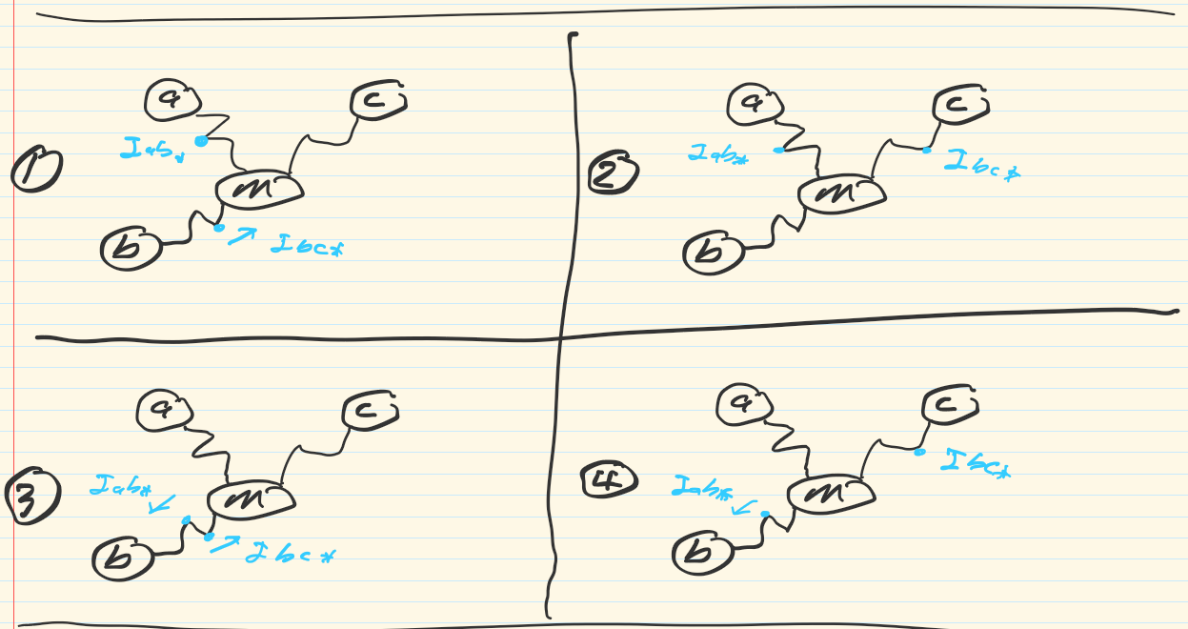 a c
Iab*
1 m
b Ibc*
a c
Iab* Ibc*
2 m
b
a c
Iab*
3 m
b Ibc*
a c
Ibc*
4 Iab* m
b